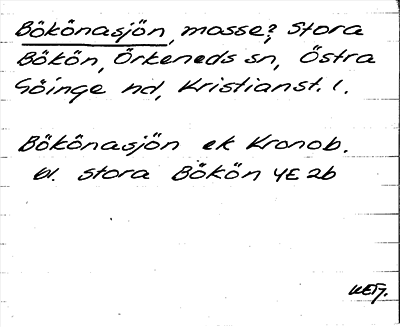 Bökönasjön, mosse? Stora
Bökön, Örkeneds sn, Östra
Göinge hd, Kristianst. l.
Bökönasjön ek Kronob.
bl. Stora Bökön 4E 2b